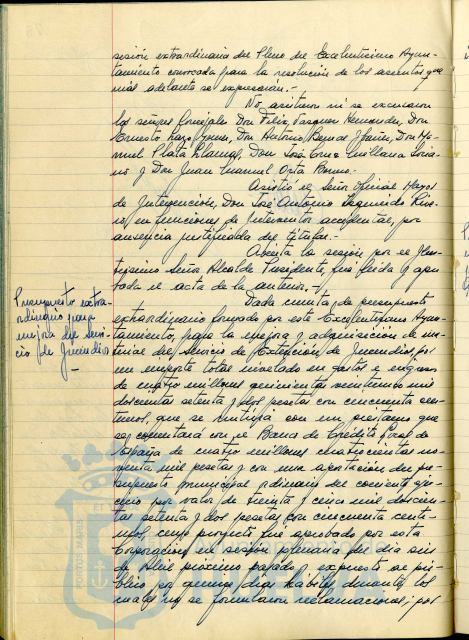 sesión extraordinaria del Pleno del Excelentísimo Ayun-
tamiento convocada para la resolución de los asuntos que
más adelante se expresarán.-
No asistieron ni se excusaron
los señores Concejales Don Felix Vazquez Hernandez, Don
Ernesto Lazo Don Antonio Don Ma-
nuel Plata Don José Orellana Soria-
no y Don Juan Manuel Orta
Asistió el Señor Oficial Mayor
de Intervención, Don José Antonio Segundo
en funciones de Interventor accidental, por
ausencia justificada del titular.-
Abierta la sesión por el Ilus-
trísimo Señor Alcalde Presidente, fue leída y apro-
bada el acta de la anterior.-
Presupuesto extrao-
rdinario para
mejora del Servi-
cio de Incendios
Dada cuenta de presupuesto
extraordinario formado por este Excelentísimo Ayun-
tamiento, para la mejora y adquisición de ma-
terial del Servicio de Extinción de Incendios, por
un importe total nivelado en gastos e ingresos
de cuatro millones quinientas veinticinco mil
doscientas setenta y dos pesetas con cincuenta cen-
timos, que se nutriría con un préstamo que
se concertará con el Banco de Crédito Local de
España de cuatro millones cuatrocientas no-
venta mil pesetas y con una aportación del pre-
supuesto municipal ordinario del corriente ejer-
cicio por valor de treinta y cinco mil doscien-
tas setenta y dos pesetas con cincuenta centi-
mos, cuyo proyecto fué aprobado por esta
Corporación en sesión plenaria del día seis
de Abril próximo pasado y expuesto al pú-
blico por quince días hábiles durante los
cuales no se formularon reclamaciones; por